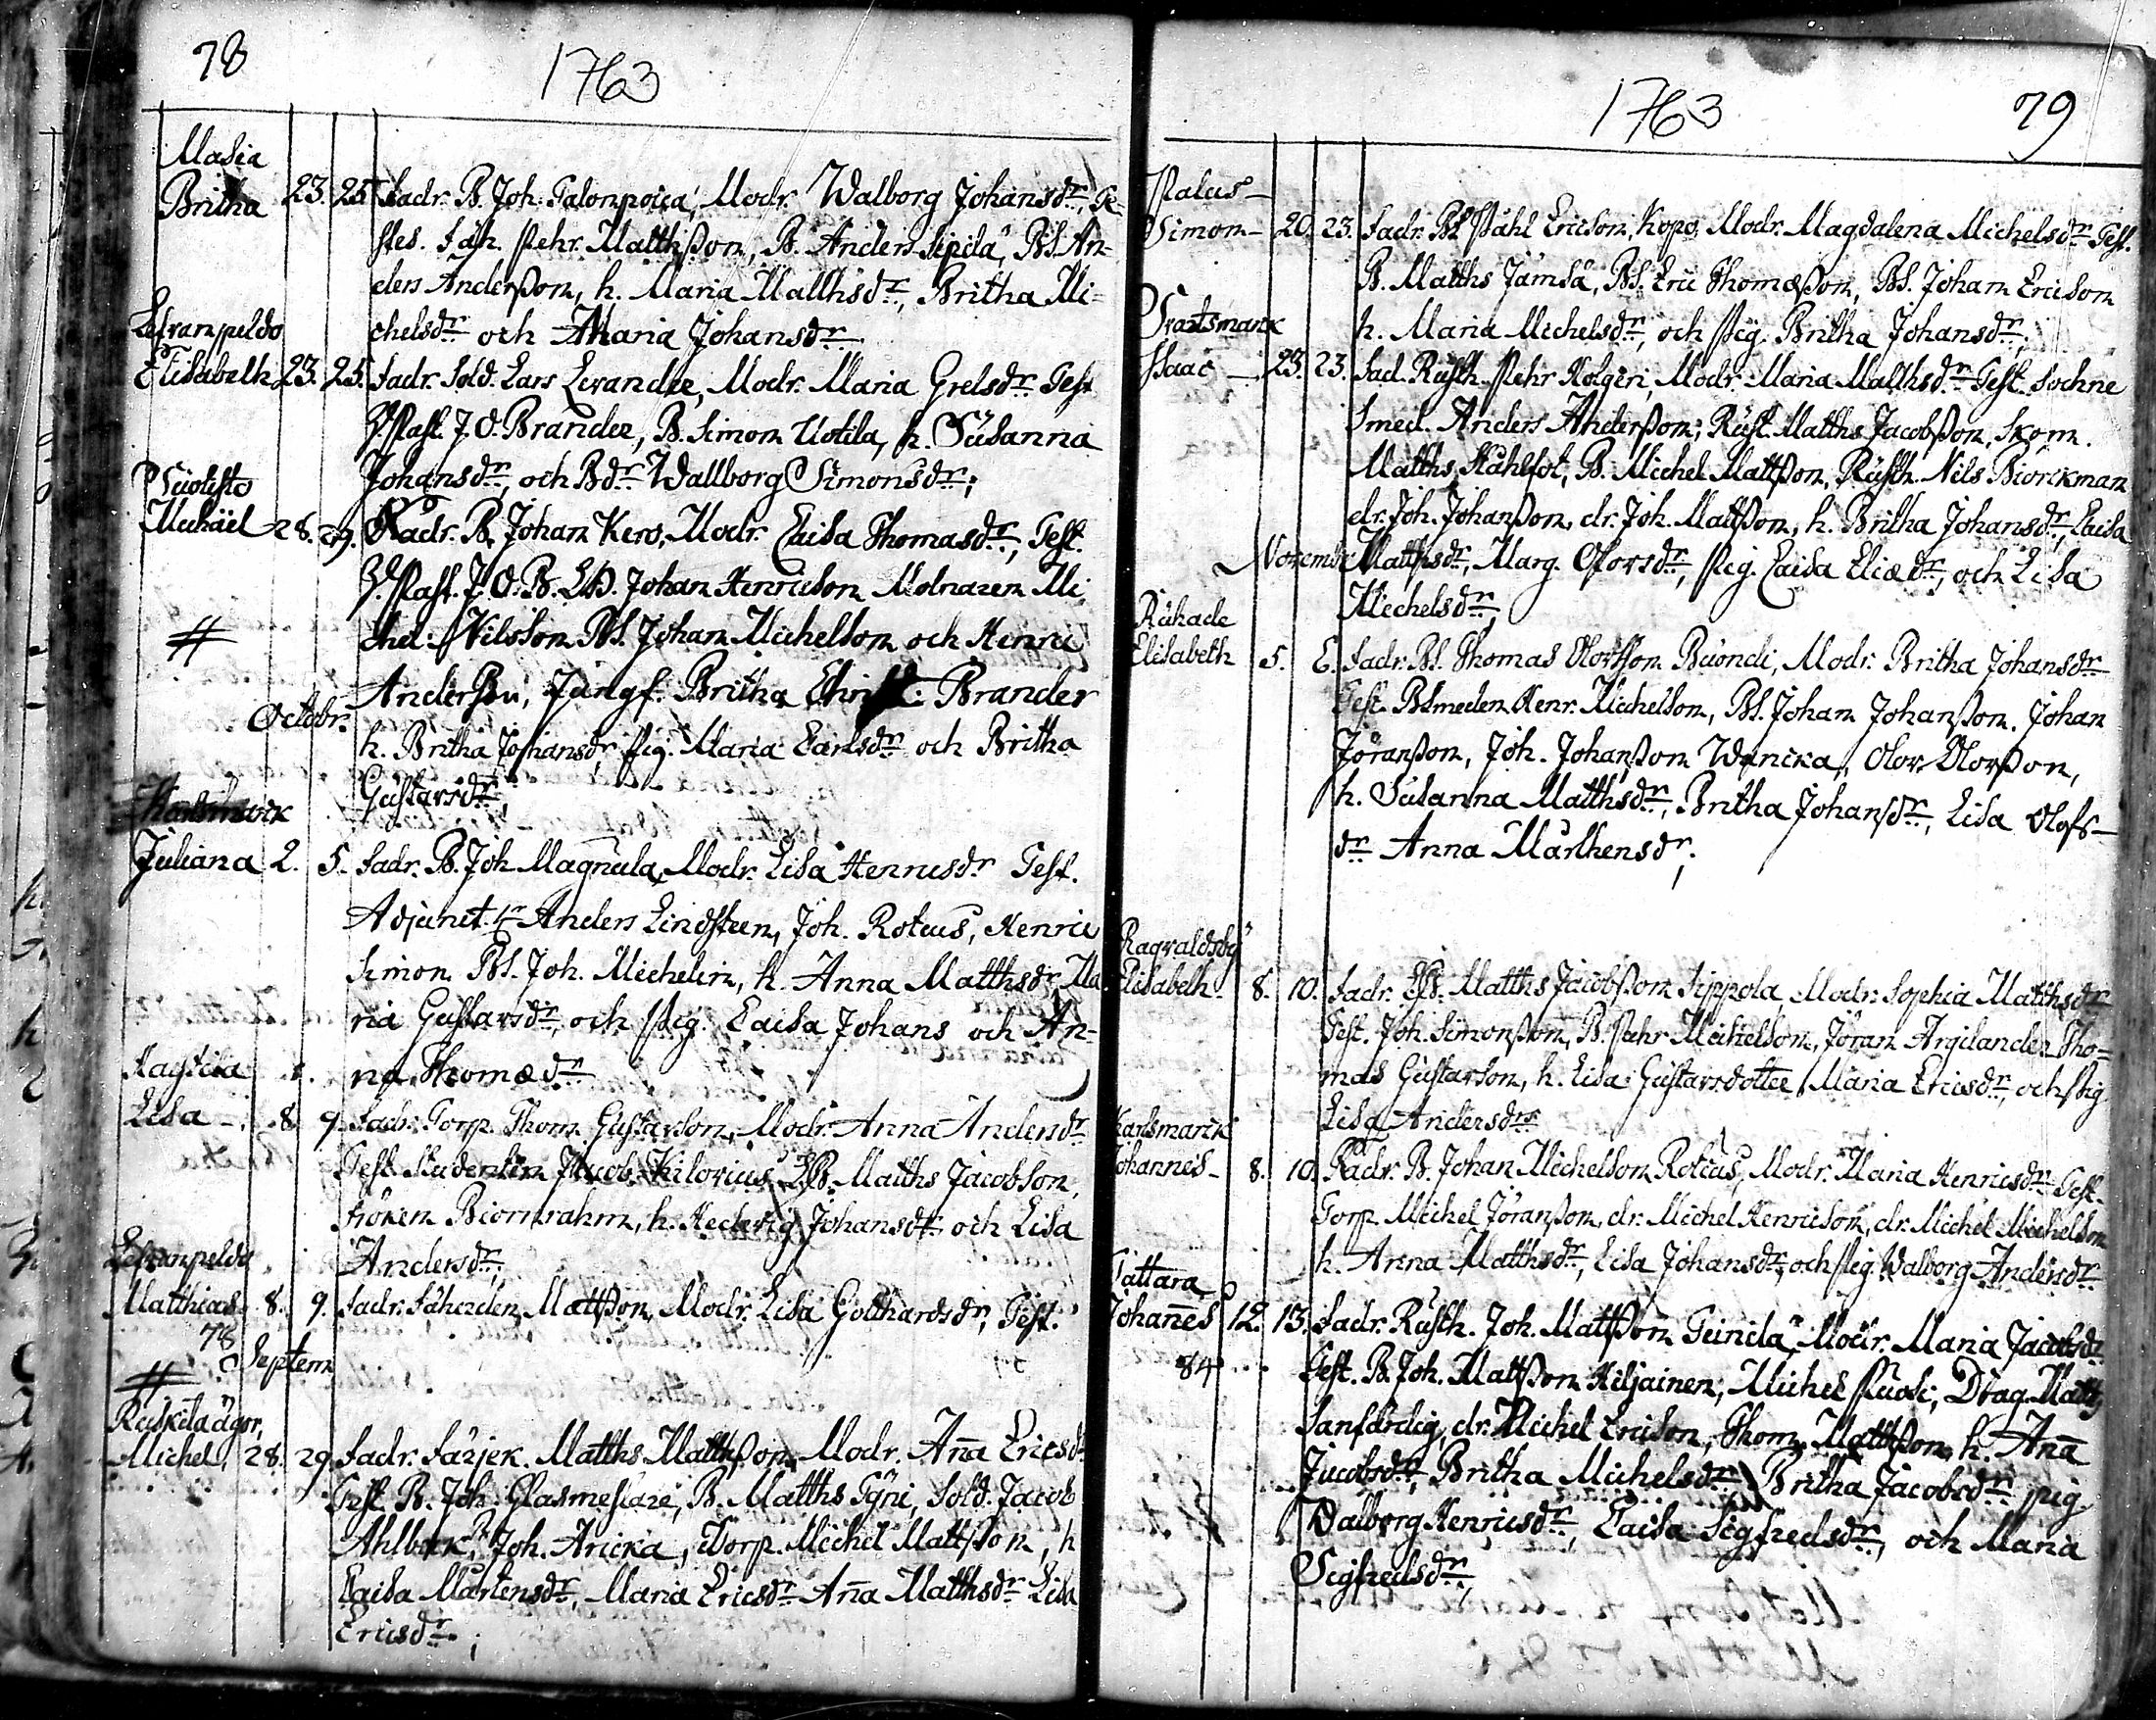 78
1763
Masia
Britha 23. 25. Fadr. B. Joh. Talonpoica, Modr. Walborg Johansdr, Te-
stes. Fäh. Pehr. Matthßon, B. Anders Sipilä, BS. An-
ders Anderßon, h. Maria Matthsdr, Britha Mi-
Lefvanpeldo
chelsdr och Maria Johansdr
Elisabeth 23. 25. Fadr. Sold. Lars Levander, Modr. Maria Grelsdr Test
H. Past. J. O. Brander, B. Simon Uotila, h. Susanna
Johansdr, och Bdr Wallborg Simonsdr;
Suolisto
Michäel 28. 29. Fadr. B. Johan Kero, Modr. Caisa Thomasdr, Test.
H. Past. J. O. B. Johan Henricson Molnaren Mi
chel Nilsson BS. Johan Michelson och Henric
Anderßon, Jungf. Britha Christ. Brander
Octobr.
h. Britha Johansdr, Pig. Maria Carlsdr och Britha
Gustavsdr;
Karlsmarck
Juliana 2. 5. Fadr. B. Joh. Magnula, Modr. Lisa Henricsdr Test.
Adjunct. Hr Anders Lindsteen, Joh. Roteus, Henric
Simon BS. Joh. Michelin, h. Anna Matthsdr Ma
ria Gustavsdr, och Pig. Caisa Johans och An-
Haystila
na Thomædr
Lisa 8. 9. Fadr. Torp. Thom. Gustavson, Modr. Anna Andersdr
Test. Studenten Jacob Kilovius Matths Jacobson,
Fröken Biornrahm, h. Hedevig Johansdr och Lisa
Lefvanpeldo
Andersdr;
Matthias 8. 9. Fadr. Fäherden Mattßon, Modr. Lisa Gotthardsdr, Test.
78
Septem
Ruskila ägor,
Michel, 28. 29. Fadr. Färjek. Matths Matthßon, Modr. Aña Ericsdr
Test. B. Joh. Glasmestare, B. Matths Työni, Sold. Jacob
Ahlbeck, Joh. Aricka, Torp. Michel Mattßon, h
Caisa Mårtensdr, Maria Ericsdr Aña Matthsdr Lisa
Ericsdr;
1763
79
Palus
Simon 20. 23. Fadr. BS Påhl Ericson, Kopo, Modr. Magdalena Michelsdr Test.
B. Matths Jämsä, BS. Eric Thomæßon, BS. Johan Ericson
Svartsmarck
h. Maria Michelsdr, och Pig. Britha Johansdr;
Isaac 23. 23. Fad. Rusth. Pehr Kolgéri, Modr. Maria Matthsdr Test. Sochne
Smed. Anders Anderßon; Rust. Matths Jacobßon, Skom.
Matths Stählfot, B. Michel Mattßon, Rusth. Nils Biorckman
dr. Joh. Johanßon, dr. Joh. Mattßon, h. Britha Johansdr, Caisa
Novembr.
Matthsdr, Marg. Olovsdr, Pig. Caisa Eliædr, och Lisa
Michelsdr,
Rukade
Elisabeth 5. 6. Fadr. BS. Thomas Olovsson Buondi, Modr. Britha Johansdr
Test. BSmeden Henr. Michelson, BS. Johan Johanßon, Johan
Jöranßon, Joh. Johanßon Wanicka, Olov Olovßon,
h. Susanna Matthsdr, Britha Johansdr, Lisa Olofs-
dr Anna Mårthensdr;
Ragvaldsby
Elisabeth 8. 10. Fadr. Matths Jacobßon Sippola Modr. Sophia Matthsdr
Test. Joh. Simonßon, B. Pehr Michelson, Jöran Argilander Tho-
mas Gustavson, h. Lisa Gustavsdotter Maria Ericsdr, och Pig
Lisa Andersdr
Karlsmarck
Johannes 8. 10. Fadr. B. Johan Michelson Roteus, Modr. Maria Henricsdr Test.
Torp. Michel Jöranßon, dr. Michel Henricson, dr. Michel Michelson
h. Anna Matthsdr, Lisa Johansdr, och Pig. Walborg Andersdr
Tattara
Johañes 12. 13. Fadr. Rusth. Joh. Mattßon Teinilä, Modr. Maria Jacobsdr
84
Test. B. Joh. Mattßon Hiljainen, Michel Puosi, Drag. Matts
Sanfärdig, dr. Michel Ericson, Thom. Matthßon, h. Aña
Jacobsdr, Britha Michelsdr, Britha Jacobsdr pig
Walborg Henricsdr, Caisa Sigfredsdr, och Maria
Sigfredsdr;